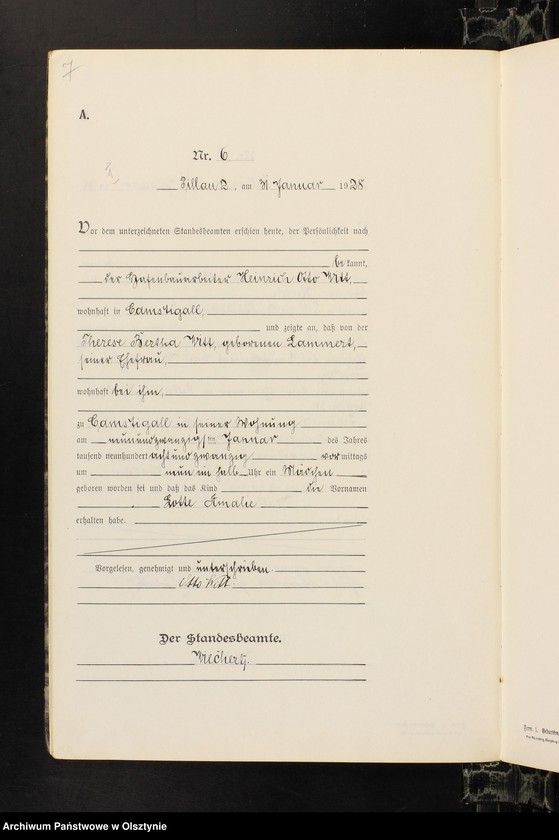 7
A.
Nr. 6
Pillau 2, am 31. Januar 1928
Vor dem unterzeichneten Standesbeamten erschien heute, der Persönlichkeit nach
bekannt,
der Hafenbauarbeiter Heinrich Otto Witt,
wohnhaft in Camstigall,
und zeigte an, daß von der
Therese Bertha Witt, geborenen Lammert,
seiner Ehefrau,
wohnhaft bei ihm,
zu Camstigall in seiner Wohnung
am neunundzwanzigsten Januar des Jahres
tausend neunhundert achtundzwanzig vormittags
um neun ein halb Uhr ein Mädchen
geboren worden sei und daß das Kind die Vornamen
Lotte Amalie
erhalten habe.
Vorgelesen, genehmigt und unterschrieben.
Otto Witt
Der Standesbeamte.
Archiwum Państwowe w Olsztynie